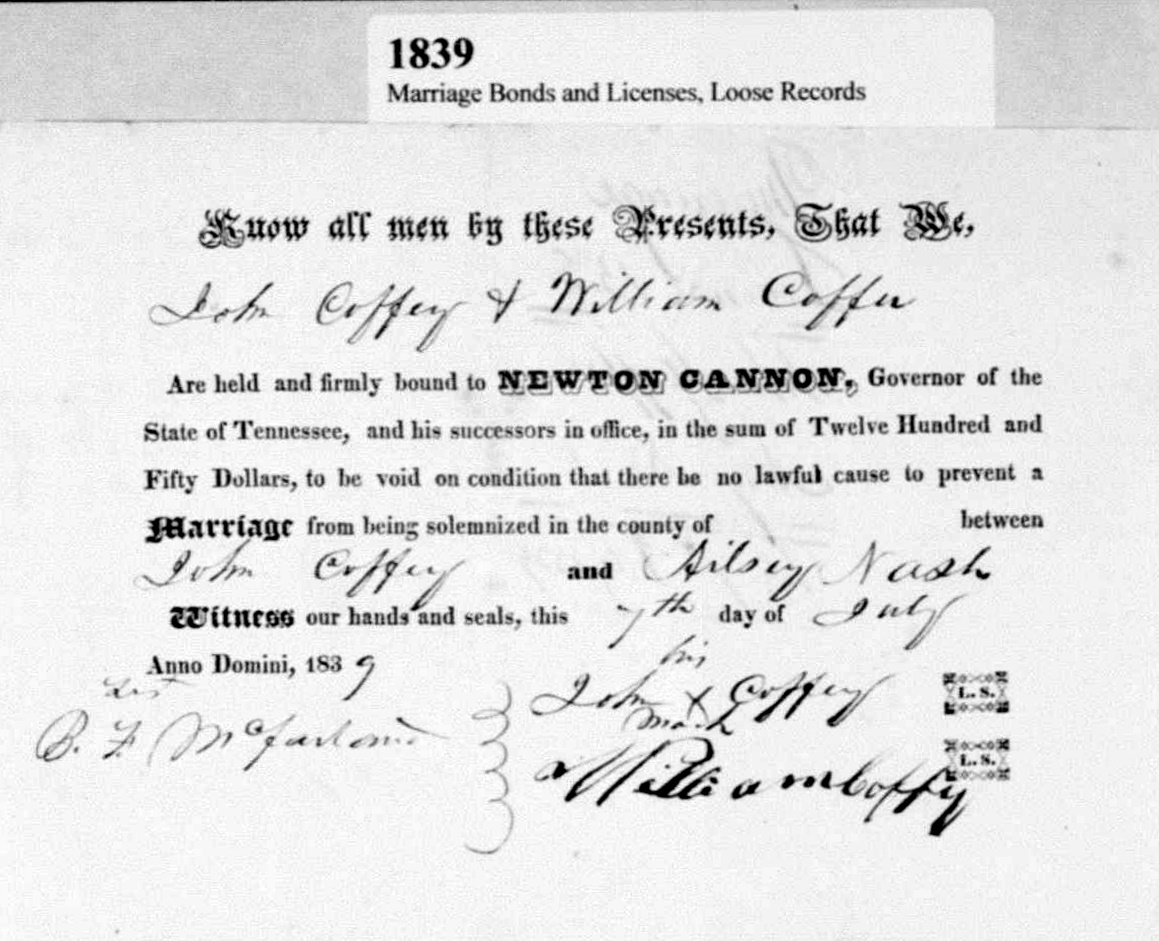 1839
Marriage Bonds and Licenses, Loose Records
Know all men by these Presents, That We,
John Coffey & William Coffer
Are held and firmly bound to NEWTON CANNON, Governor of the
State of Tennessee, and his successors in office, in the sum of Twelve Hundred and
Fifty Dollars, to be void on condition that there be no lawful cause to prevent a
Marriage from being solemnized in the county of between
John Coffey and Ailsey Nash
Witness our hands and seals, this 7th day of July
Anno Domini, 1839
his
John X Coffey L. S.
mark
B. F. McFarland
William Coffy L. S.